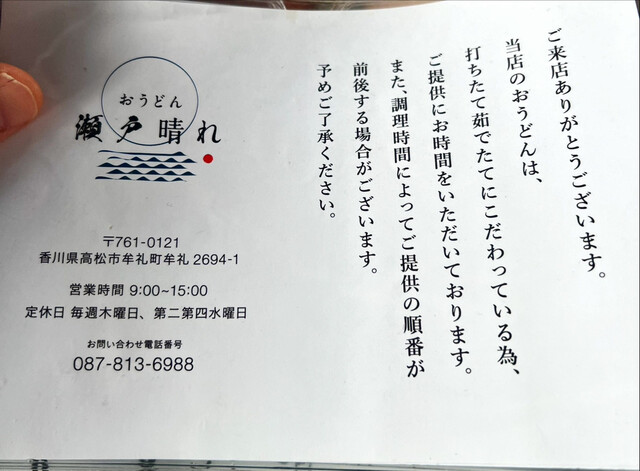 ご来店ありがとうございます。
当店のおうどんは、
打ちたて茹でたてにこだわっている為、
ご提供にお時間をいただいております。
また、調理時間によってご提供の順番が
前後する場合がございます。
予めご了承ください。
おうどん
瀬戸晴れ
〒761-0121
香川県高松市牟礼町牟礼 2694-1
営業時間 9:00~15:00
定休日 毎週木曜日、第二第四水曜日
お問い合わせ電話番号
087-813-6988